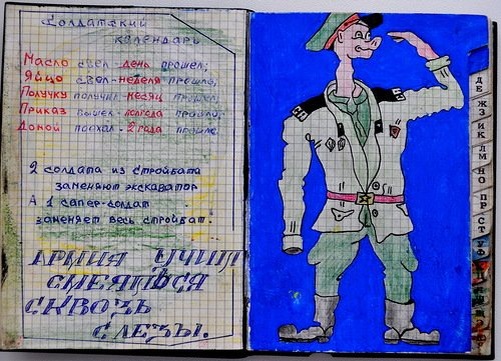 Солдатский
календарь
Масло съел - день прошел;
Яйцо съел - неделя прошла;
Получку получил - месяц прошел;
Приказ вышел - полгода прошло;
Домой поехал - 2 года прошло.
2 солдата из стройбата
заменяют экскаватор
А 1 сапер-солдат
заменяет весь стройбат.
АРМИЯ УЧИТ
СМЕЯТЬСЯ
СКВОЗЬ
СЛЕЗЫ.
ДЕ
Ж
З
И
К
Л
М
Н
О
П
Р
С
Т
У
Ф